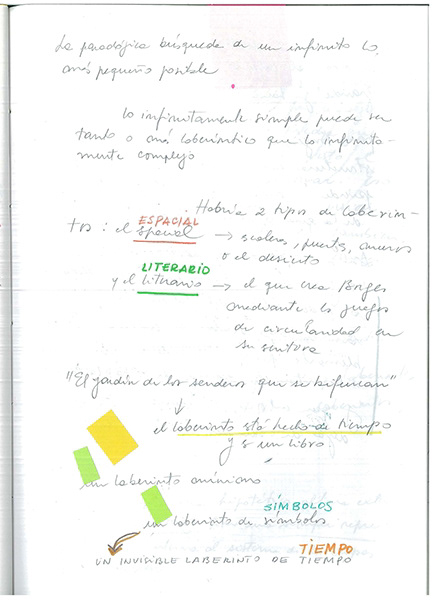 La paradógica búsqueda de un infinito lo
más pequeño posible
lo infinitamente simple puede ser
tanto o más laberíntico que lo infinita-
mente complejo
Habría 2 tipos de laberin-
ESPACIAL
tos: el espacial → escaleras, puertas, muros
o el desierto
LITERARIO
y el literario → el que crea Borges
mediante los juegos
de circularidad en
su escritura
"El jardín de los senderos que se bifurcan"
el laberinto está hecho de tiempo
y es un libro
un laberinto
SÍMBOLOS
un laberinto de símbolos
TIEMPO
UN INVISIBLE LABERINTO DE TIEMPO